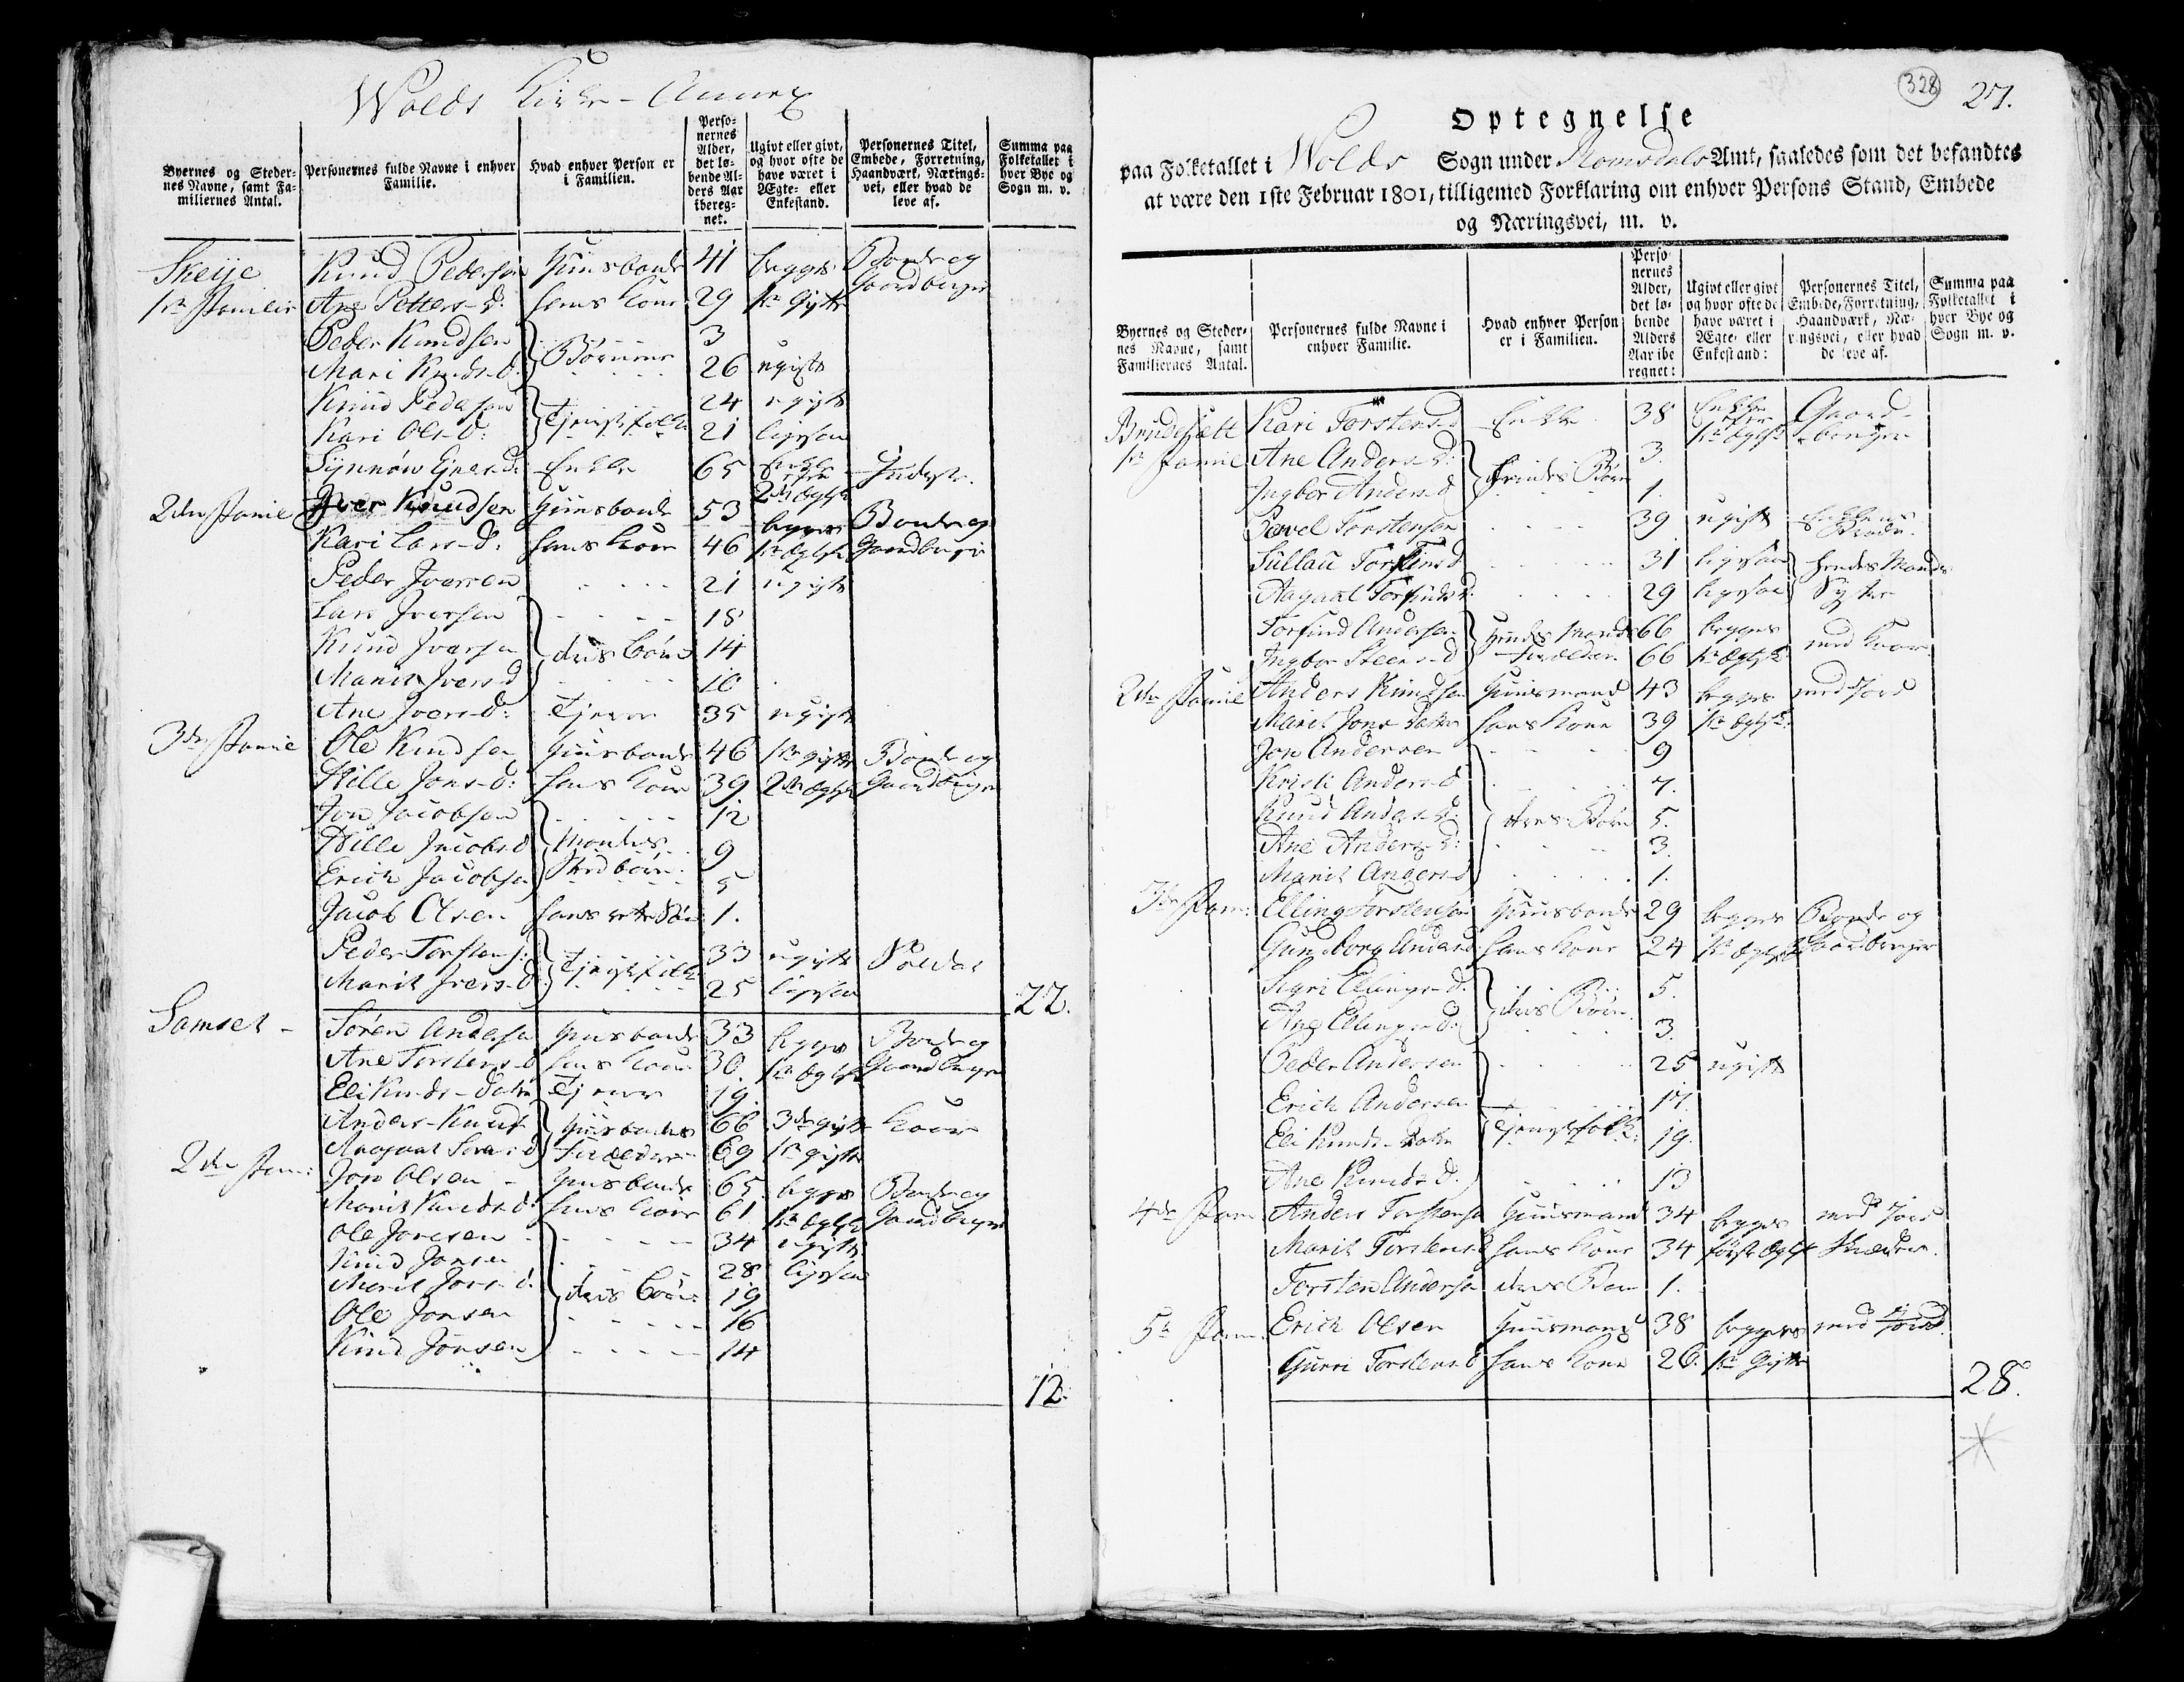 Wolds Kirke-Annex
Byernes og Steder-
nes Navne, samt Fa-
miliernes Antal.
Personernes fulde Navne i enhver
Familie.
Hvad enhver Person er
i Familien.
Perso-
nernes
Alder,
det lø-
bende Al-
ders Aar
ibereg-
net.
Ugivt eller givt,
og hvor ofte de
have været i
Ægte- eller
Enkestand.
Personernes Titel,
Embede, Forretning,
Haandværk, Nærings-
vei, eller hvad de
leve af.
Summa paa
Folketallet i
hver Bye og
Sogn m. v.
Skeije Knud Pedersen Huusbonde 41 begge Bonde og
1te Familie Ane Petters-D: hans Kone 29 1te Gifte Gaardbruger
Peder Knudsen 3
Børnene
Mari Knuds-D: 26 ugift
Knud Pedersen 24 ugift
Tjenistfolk
Kari Ols-D: 21 ligesaa
Synnøw Ejnes-D: Enke 65 Enke efter 2det Ægtsk
2den Famie Iver Knudsen Huusbonde 53 begge Bonde og
Kari Lars-D: hans Kone 46 1te Ægtsk Gaardbruger
Peder Iversen 21 ugift
Lars Iversen 18
Knud Iversen deres Børn 14
Marit Ivers-D 10
Ane Ivers-D: Tjener 35 ugift
3de Famie Ole Knudsen Huusbonde 46 1te gifte Bonde og
Hille Jons-D: hans Kone 39 2det Ægtsk Gaardbruger
Jon Jacobsen 12
Hille Jacobs-D Mandens 9
Erich Jacobsen Stedbørn 5
Jacob Olsen hans ægte Søn 1.
Peder Torstens: 33 ugift Soldat
Tjenistfolk
Marit Ivers-D: 25 ligesaa
22.
Samset - Søren Andersen Huusbonde 33 begge Bonde og
Ane Torstens-D hans Kone 30. 1te Ægtsk Gaardbruger
Eli Knuds-Datter Tjener 19.
Anders Knuds Huusbondes 66 3de gifte
Aagaat Sørens-D Forældre 69 1te gifte
2den Fam: Jon Olsen - Huusbonde 65 begge Bonde og
Marit Knuds-D: hans Kone 61 1te Ægtsk Gaardbruger
Ole Jonsen - 34 ugift
Knud Jonsen 28 ligesaa
Marit Jons-D: deres Børn 19
Ole Jonsen 16
Knud Jonsen 14
12.
328
27.
Optegnelse
paa Folketallet i Wolds Sogn under Romsdals Amt, saaledes som det befandtes
at være den 1ste Februar 1801, tilligemed Forklaring om enhver Persons Stand, Embede
og Næringsvei, m. v.
Byernes og Steder-
nes Navne, samt
Familiernes Antal.
Personernes fulde Navne i
enhver Familie.
Hvad enhver Person
er i Familien.
Perso-
nernes
Alder,
det lø-
bende
Alders
Aar ibe
regnet:
Ugivt eller givt
og hvor ofte de
have været i
Ægte- eller
Enkestand:
Personernes Titel,
Embede, Forretning,
Haandværk, Næ-
ringsvei, eller hvad
de leve af.
Summa paa
Folketallet i
hver Bye og
Sogn m. v.
Brudesætt Kari Torstens-d Enke 38 Enke efter 1te Ægtsk Gaard-
bruger
1te Famie Ane Anders-D: 3.
hendes Børn
Ingbor Anders-d 1.
Povel Torstensen 39 ugift Enkens Broder.
Sullau Torfins d 31 ligesaa hendes Mands
Aagaat Torfinds d: 29 ligesaa Syster
Torfind Andersen hendes Mands 66 begge
Ingbor Steens-d Forældre 66 1te Ægtsk
2den Famie Anders Knudsen Huusmand 43 begge med Jord
Marit Jons-Datter hans Kone 39 1te Ægtsk:
Jon Andersen 9
Kristi Anders-d 7.
Knud Anders-D: deres Børn 5.
Ane Anders-D: 3.
Marit Anders-d 1.
3de Fam: Elling Torstensen Huusbonde 29 begge Bonde og
Gunborg Anders-d hans Kone 24 1te Ægtsk Gaardbruger
Sigri Ellings-D. 5.
deres Børn
Ane Ellings-D: 3.
Peder Andersen 25 ugift
Erich Andersen 17.
Eli Knuds-Datter Tjenistfolk: 19.
Ane Knuds D. 13
4de Fam Anders Torstensen Huusmand 34 begge med Jord
Marit Torstens-d hans Kone 34 første Ægtsk Skræder.
Torsten Andersen deres Barn 1.
5te Fam. Erich Olsen Huusmand 38 begge med Jord
Gurri Torstens-d hans Kone 26. 1te Gifte
28.